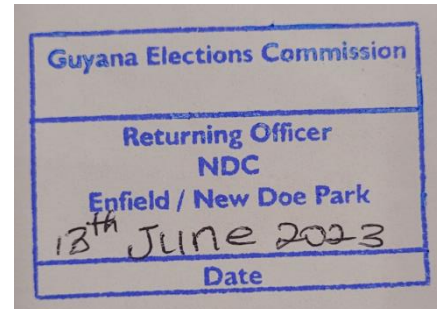 Guyana Elections Commission
Returning Officer
NDC
Enfield / New Doe Park
13th June 2023
Date